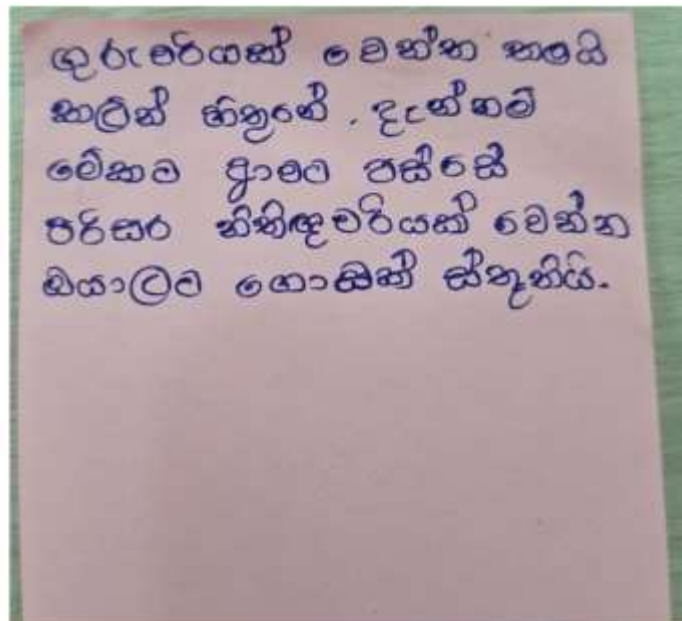 ගුරුවරියක් වෙන්න තමයි
කලින් හිතුනේ. දැන්නම්
මේකට ආවට පස්සේ
පරිසර නිතිඥවරියක් වෙන්න
ඔයාලට ගොඩක් ස්තූතියි.